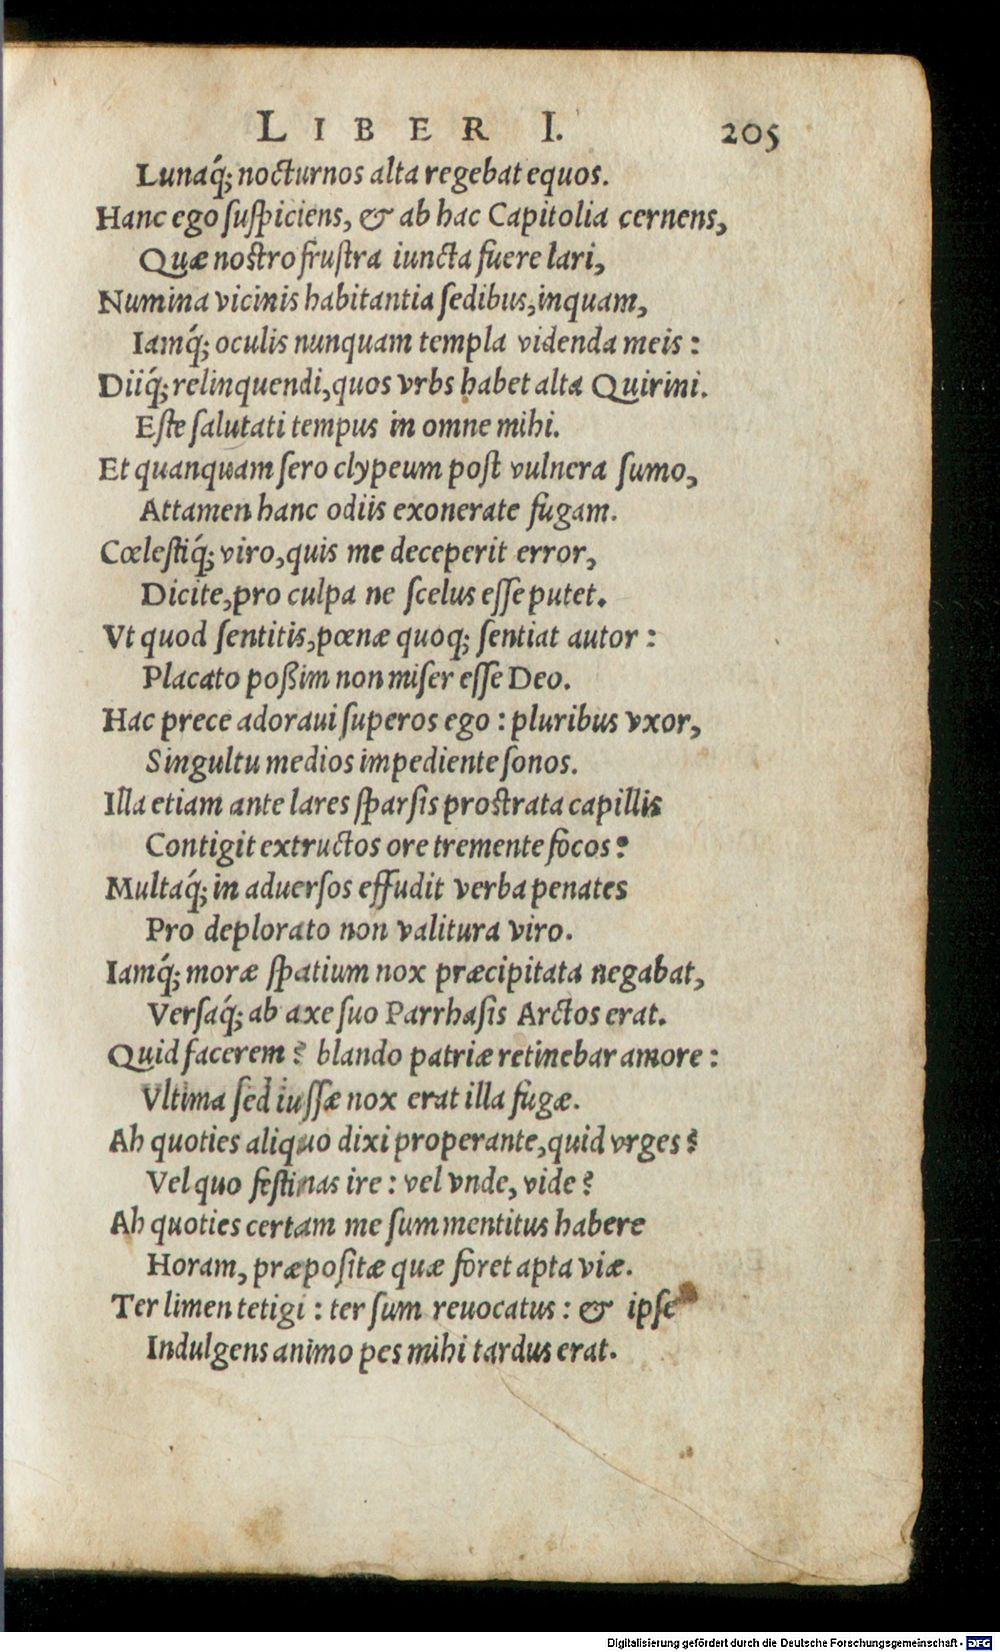 LIBER I. 205
Lunaq́; nocturnos alta regebat equos.
Hanc ego suspiciens, & ab hac Capitolia cernens,
Quæ nostro frustra iuncta fuere lari,
Numina vicinis habitantia sedibus, inquam,
Iamq́; oculis nunquam templa videnda meis:
Diiq́; relinquendi, quos vrbs habet alta Quirini.
Este salutati tempus in omne mihi.
Et quanquam sero clypeum post vulnera sumo,
Attamen hanc odiis exonerate fugam.
Cœlestiq́; viro, quis me deceperit error,
Dicite, pro culpa ne scelus esse putet.
Vt quod sentitis, pœnæ quoq; sentiat autor:
Placato poßim non miser esse Deo.
Hac prece adoraui superos ego: pluribus vxor,
Singultu medios impediente sonos.
Illa etiam ante lares sparsis prostrata capillis
Contigit extructos ore tremente focos?
Multaq́; in aduersos effudit verba penates
Pro deplorato non valitura viro.
Iamq́; moræ spatium nox præcipitata negabat,
Versaq́; ab axe suo Parrhasis Arctos erat.
Quid facerem? blando patriæ retinebar amore:
Vltima sed iussæ nox erat illa fugæ.
Ah quoties aliquo dixi properante, quid vrges?
Vel quo festinas ire: vel vnde, vide?
Ah quoties certam me sum mentitus habere
Horam, præpositæ quæ foret apta viæ.
Ter limen tetigi: ter sum reuocatus: & ipse
Indulgens animo pes mihi tardus erat.
Digitalisierung gefördert durch die Deutsche Forschungsgemeinschaft - DFG